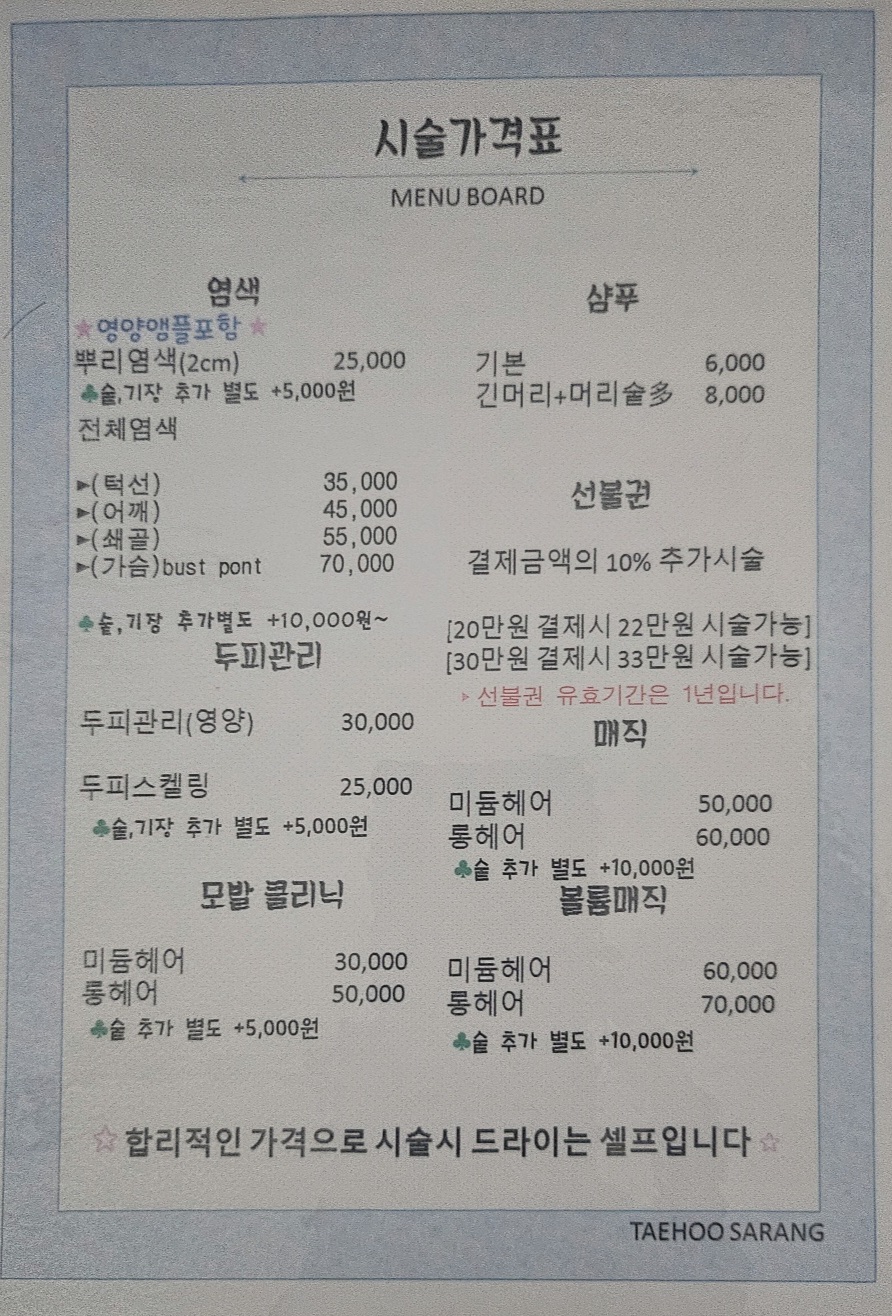 시술가격표
MENU BOARD
염색
★영양앰플포함★
뿌리염색(2cm) 25,000
♣숱,기장 추가 별도 +5,000원
전체염색
►(턱선) 35,000
►(어깨) 45,000
►(쇄골) 55,000
►(가슴)bust pont 70,000
♣숱,기장 추가별도 +10,000원~
두피관리
두피관리(영양) 30,000
두피스켈링 25,000
♣숱,기장 추가 별도 +5,000원
모발 클리닉
미듐헤어 30,000
롱헤어 50,000
♣숱 추가 별도 +5,000원
샴푸
기본 6,000
긴머리+머리숱多 8,000
선불권
결제금액의 10% 추가시술
[20만원 결제시 22만원 시술가능]
[30만원 결제시 33만원 시술가능]
▹선불권 유효기간은 1년입니다.
매직
미듐헤어 50,000
롱헤어 60,000
♣숱 추가 별도 +10,000원
볼륨매직
미듐헤어 60,000
롱헤어 70,000
♣숱 추가 별도 +10,000원
☆합리적인 가격으로 시술시 드라이는 셀프입니다☆
TAEHOO SARANG